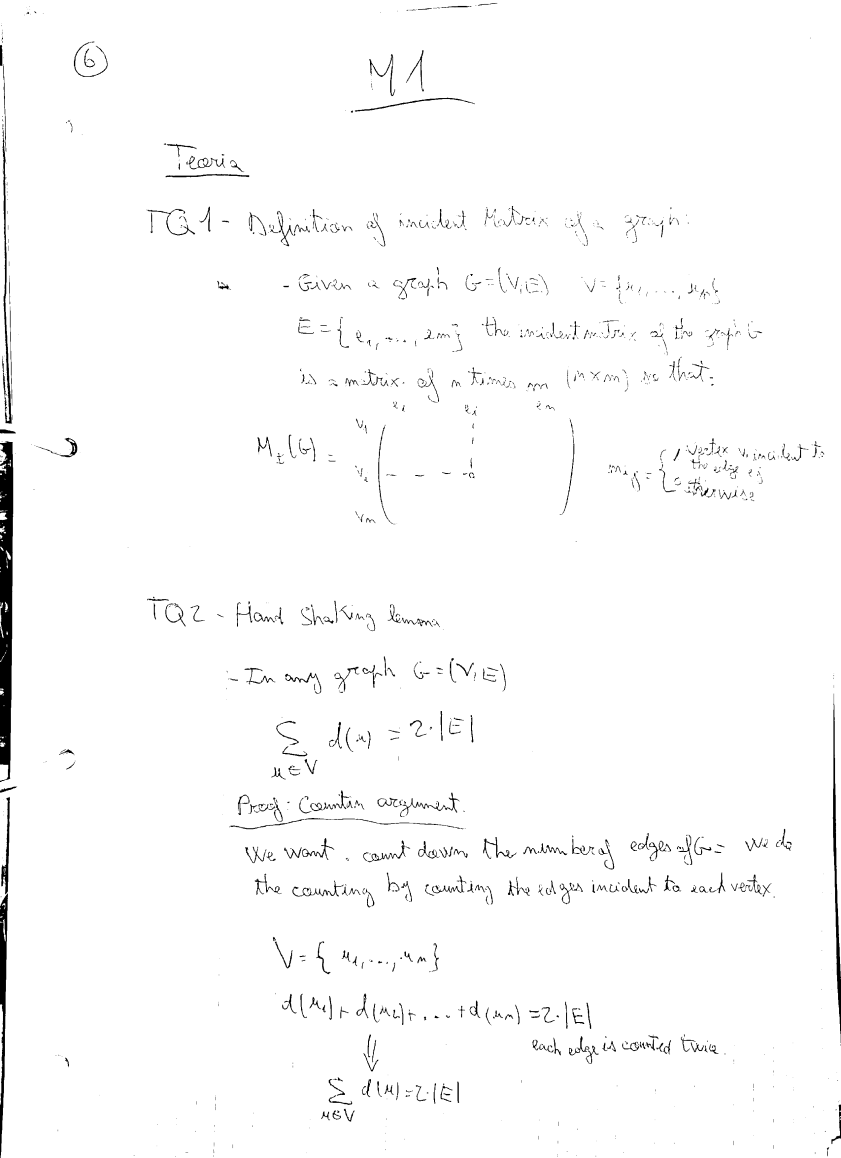 6
M1
Teoria
TQ1 - Definition of incident Matrix of a graph:
- Given a graph G=(V,E) V={u1,...,un}
E={e1,...,em} the incident matrix of the graph G
is a matrix of n times m (n×m) so that:
e1 ej em
V1
MI(G) = Vi - - - mij = { 1 vertex vi incident to the edge ej
0 otherwise
Vn
TQ2 - Hand Shaking lemma
- In any graph G=(V,E)
∑ d(u) = 2·|E|
u∈V
Proof: Countin argument.
We want count down the number of edges of G= we do
the counting by counting the edges incident to each vertex.
V={u1,...,un}
d(u1)+d(u2)+...+d(un)=2·|E|
each edge is counted twice.
⇓
∑ d(u)=2·|E|
u∈V